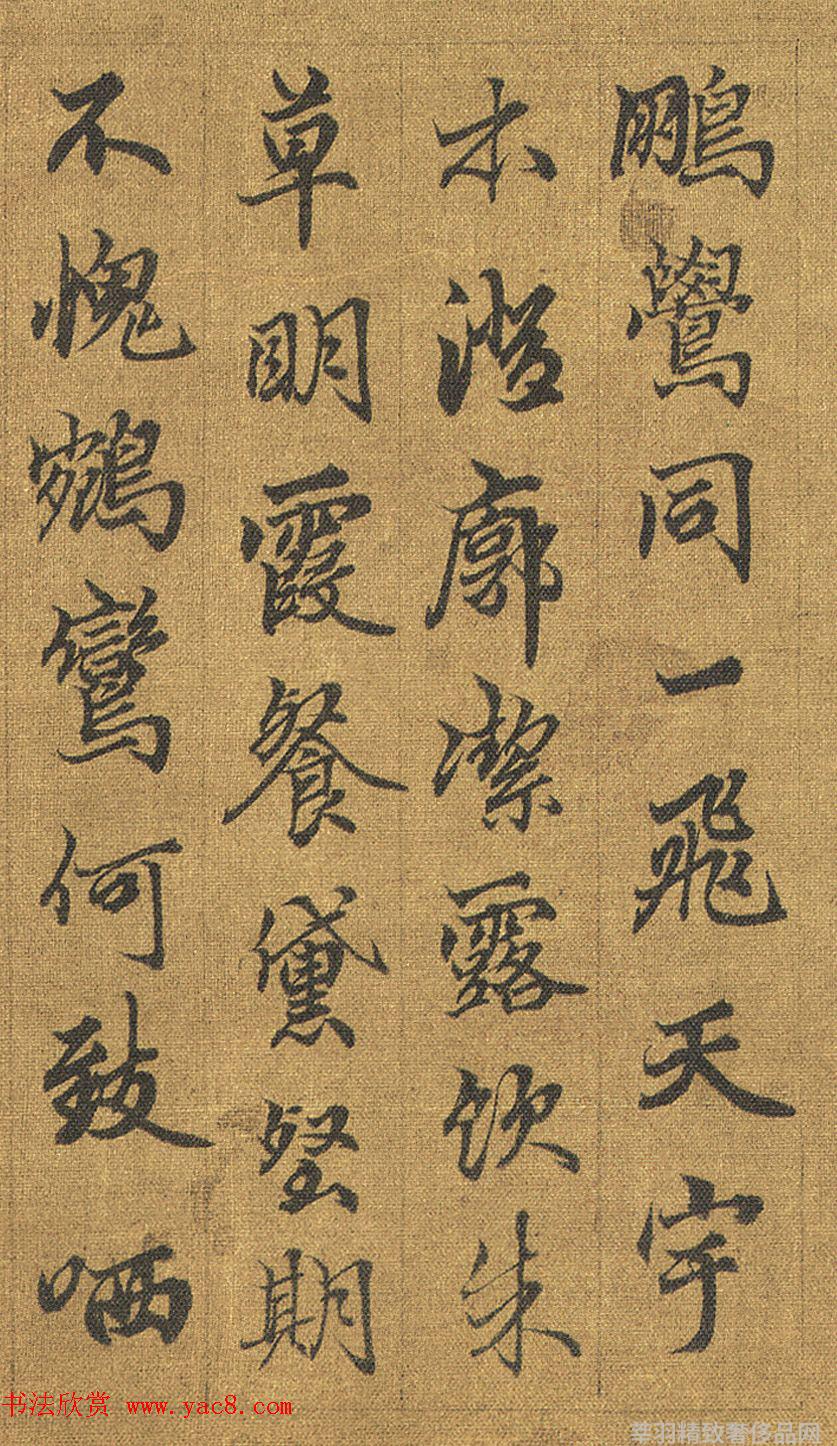 鵬鷽同一飛天宇
本澄廓潔露飲朱
草明霞餐黛壑期
不愧鵷鸞何致哂
书法欣赏 www.yac8.com
羽精致奢侈品网